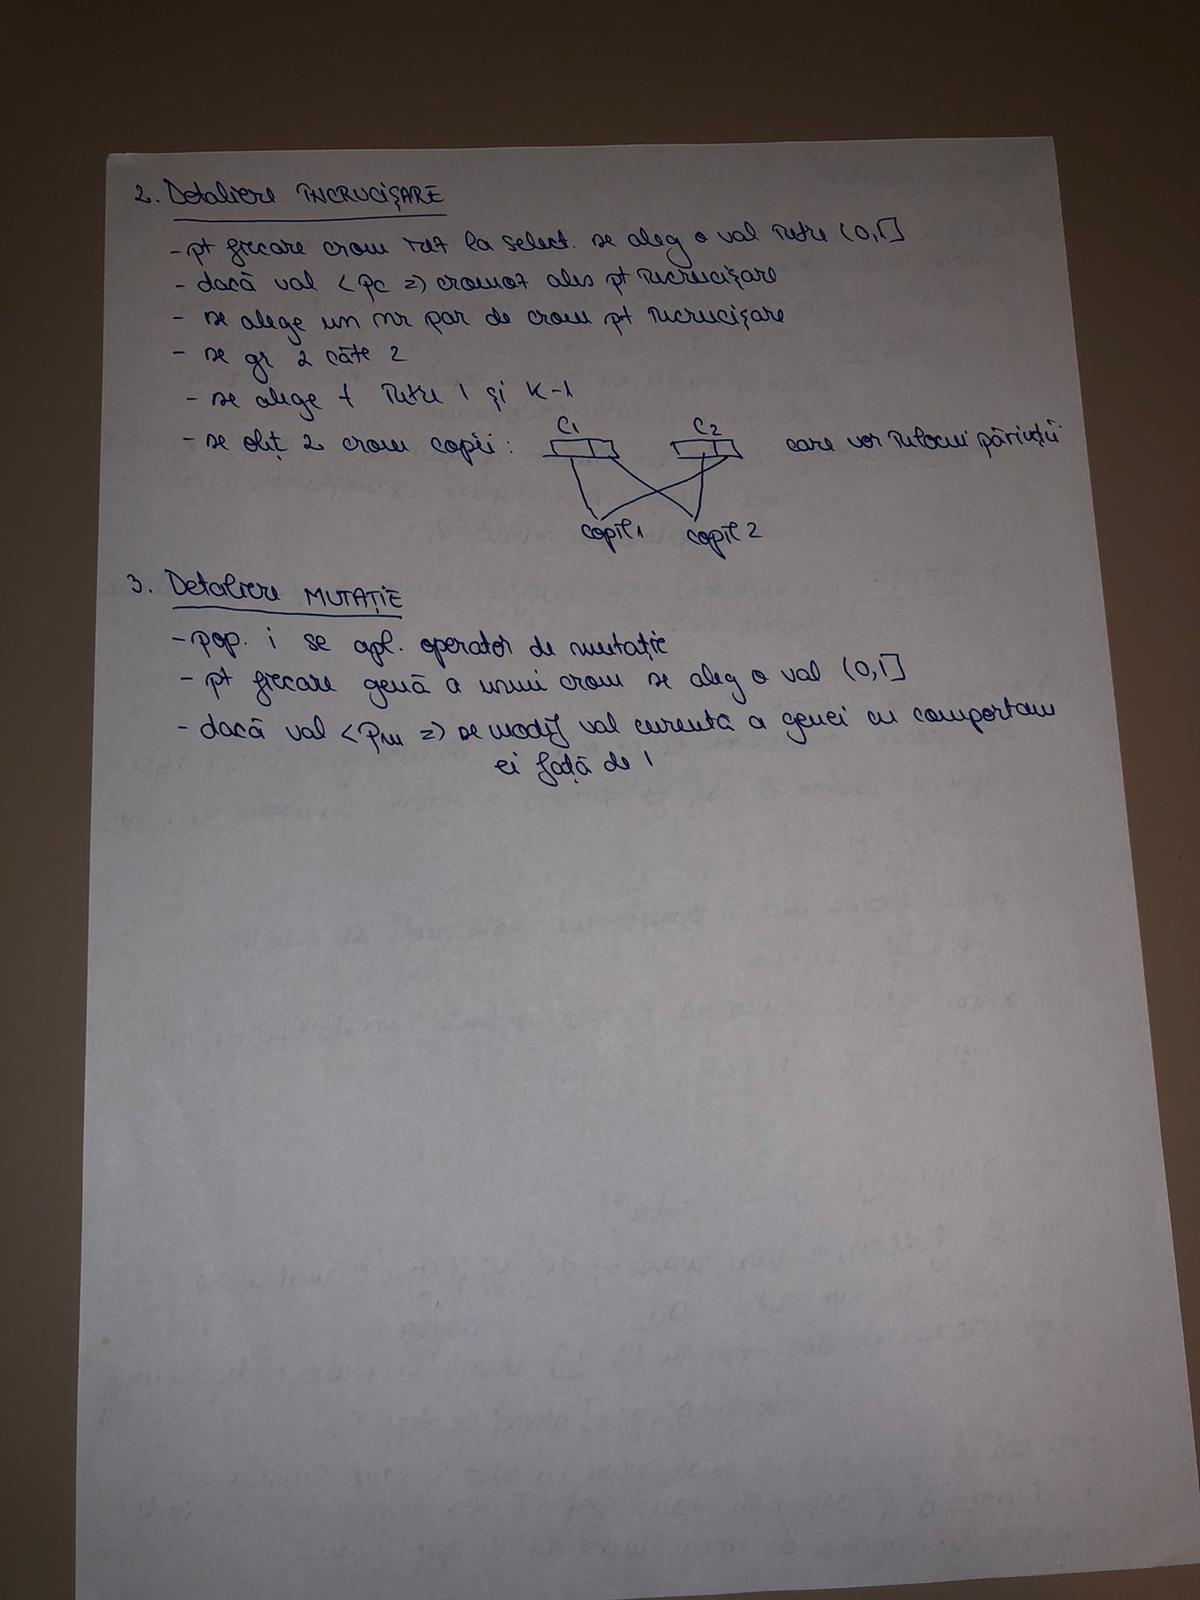 2. Detaliere ÎNCRUCIȘARE
- pt fiecare crom rez la select. se aleg o val între (0,1]
- dacă val < pc => cromoz ales pt încrucișare
- se alege un nr par de crom pt încrucișare
- se gr 2 câte 2
- se alege t între 1 și K-1
- se obț 2 crom copii : C1 C2 care vor înlocui părinții
copil1 copil 2
3. Detaliere MUTAȚIE
- pop. i se apl. operator de mutație
- pt fiecare genă a unui crom se aleg o val (0,1]
- dacă val < pm => se modif val curentă a genei cu complortam
ei față de 1